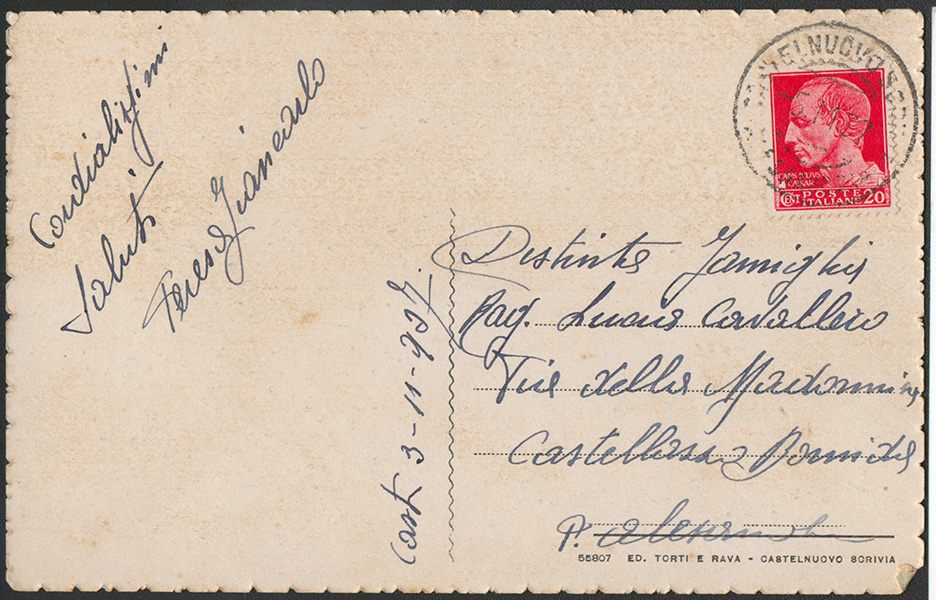 Cordialissimi
Saluti
Teresa Giancarlo
Cast. 3-11-937.
CAIVS IVLIVS
CAESAR
CENT POSTE ITALIANE 20
Distinta Famiglia
Rag. Cavallero
Via della Madonnina
Castellazzo Bormida
P. Alessandria
55807 ED. TORTI E RAVA - CASTELNUOVO SCRIVIA